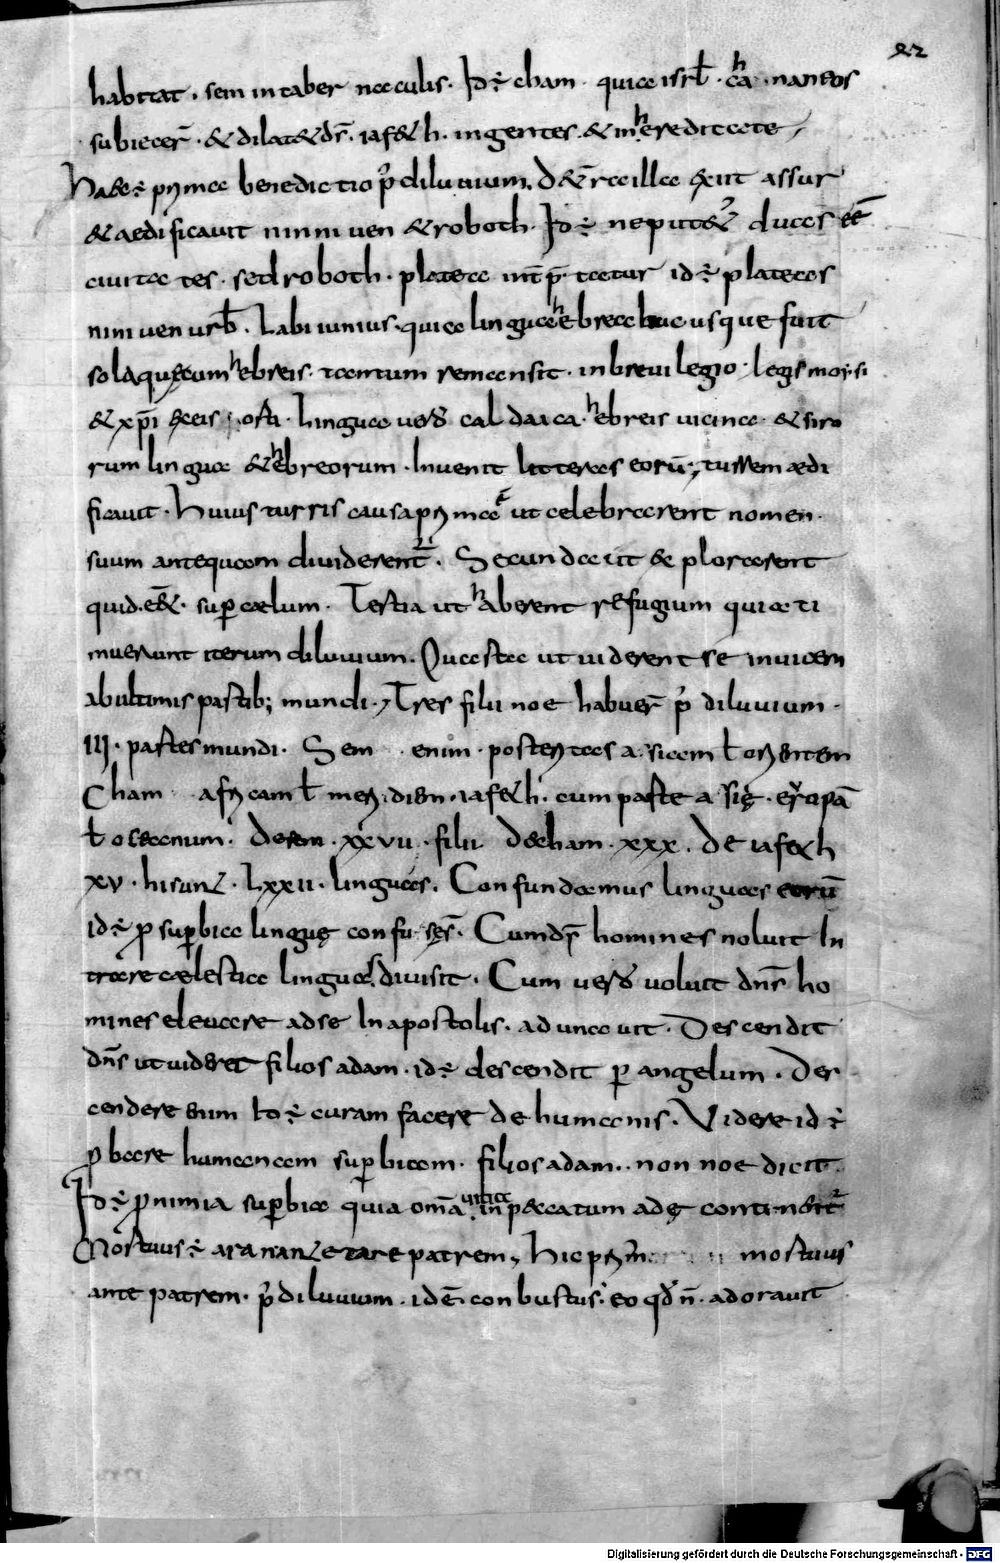 22
habitat · sem in taber naculis · Id ÷ cham · quia isrƚ · cħa · naneos
subiecer̄ · & dilat& ds̄ · iaf&h · in gentes · & in heredit ate
Haec ÷ prima benedictio p̄ diluuium. De t̄ra illa exiit assur
& aedificauit niniuen & roboth · Id ÷ neput& duces eē
ciuita tes · sed roboth · platea int̄p̄ tatur id ÷ plateas
niniuen urb̄ · Labi iunius · quia lingua hebrea huc usque fuit
sola quę cum hebreis · tantum remansit · in breuilegio · legis moysi
& xp̄i · Lingua uero cal daica · hebreis uicina · & siro
rum lingua & hebreorum · Inuenit litteras eorū ; turrem ædi
ficauit · Huius turris causa prima ē ut celebrarent nomen
suum antequam diuiderent̄ · Secunda ut & plorarent
quid · e& · sup cælum · Tertia ut haberent refugium quia ti
muerunt iterum diluuium · Quarta ut uiderent se inuicem
ab ultimis partib; mundi · Tres filii noe habuer̄ p̄ diluuium ·
III · partes mundi · Sem enim · posteritas a · siam ƚ orientem
Cham africam ƚ meridiem · iafeth · cum parte a się · eyropā
ƚ occasum · De sem · xxvii · filii De cham · xxx · De iafeth
xv · hi sunt · Lxxii · linguæs · Confundamus linguas eorū
id ÷ p superbia linguę confu sęs̄ · Cum dp̄ homines noluit In
trare cælestia linguas diuisit · Cum uero uoluit dns̄ ho
mines eleuare ad se In apostolis · ad unauit · Descendit
dns̄ ut uideret filios adam · id ÷ descendit p angelum · Des
cendere eum to ÷ curam facere de humanis · Videre id ÷
p bare humanam superbiam · filios adam · non noe dicit ·
Id ÷ p nimia superbia quia om̄a uitia in peccatum adę continent̄
Mortuus ÷ aran ante tare patrem, Hic prim̄ mortuus
ante patrem · p̄ diluuium · id ē conbustus · eo qđ n̄ · adorauit
Digitalisierung gefördert durch die Deutsche Forschungsgemeinschaft · DFG